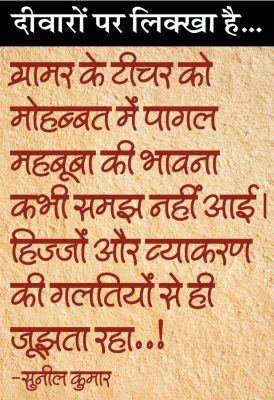 दीवारों पर लिक्खा है...
ग्रामर के टीचर को
मोहब्बत में पागल
महबूबा की भावना
कभी समझ नहीं आई।
हिज्जों और व्याकरण
की गलतियों से ही
जूझता रहा..!
-सुनील कुमार